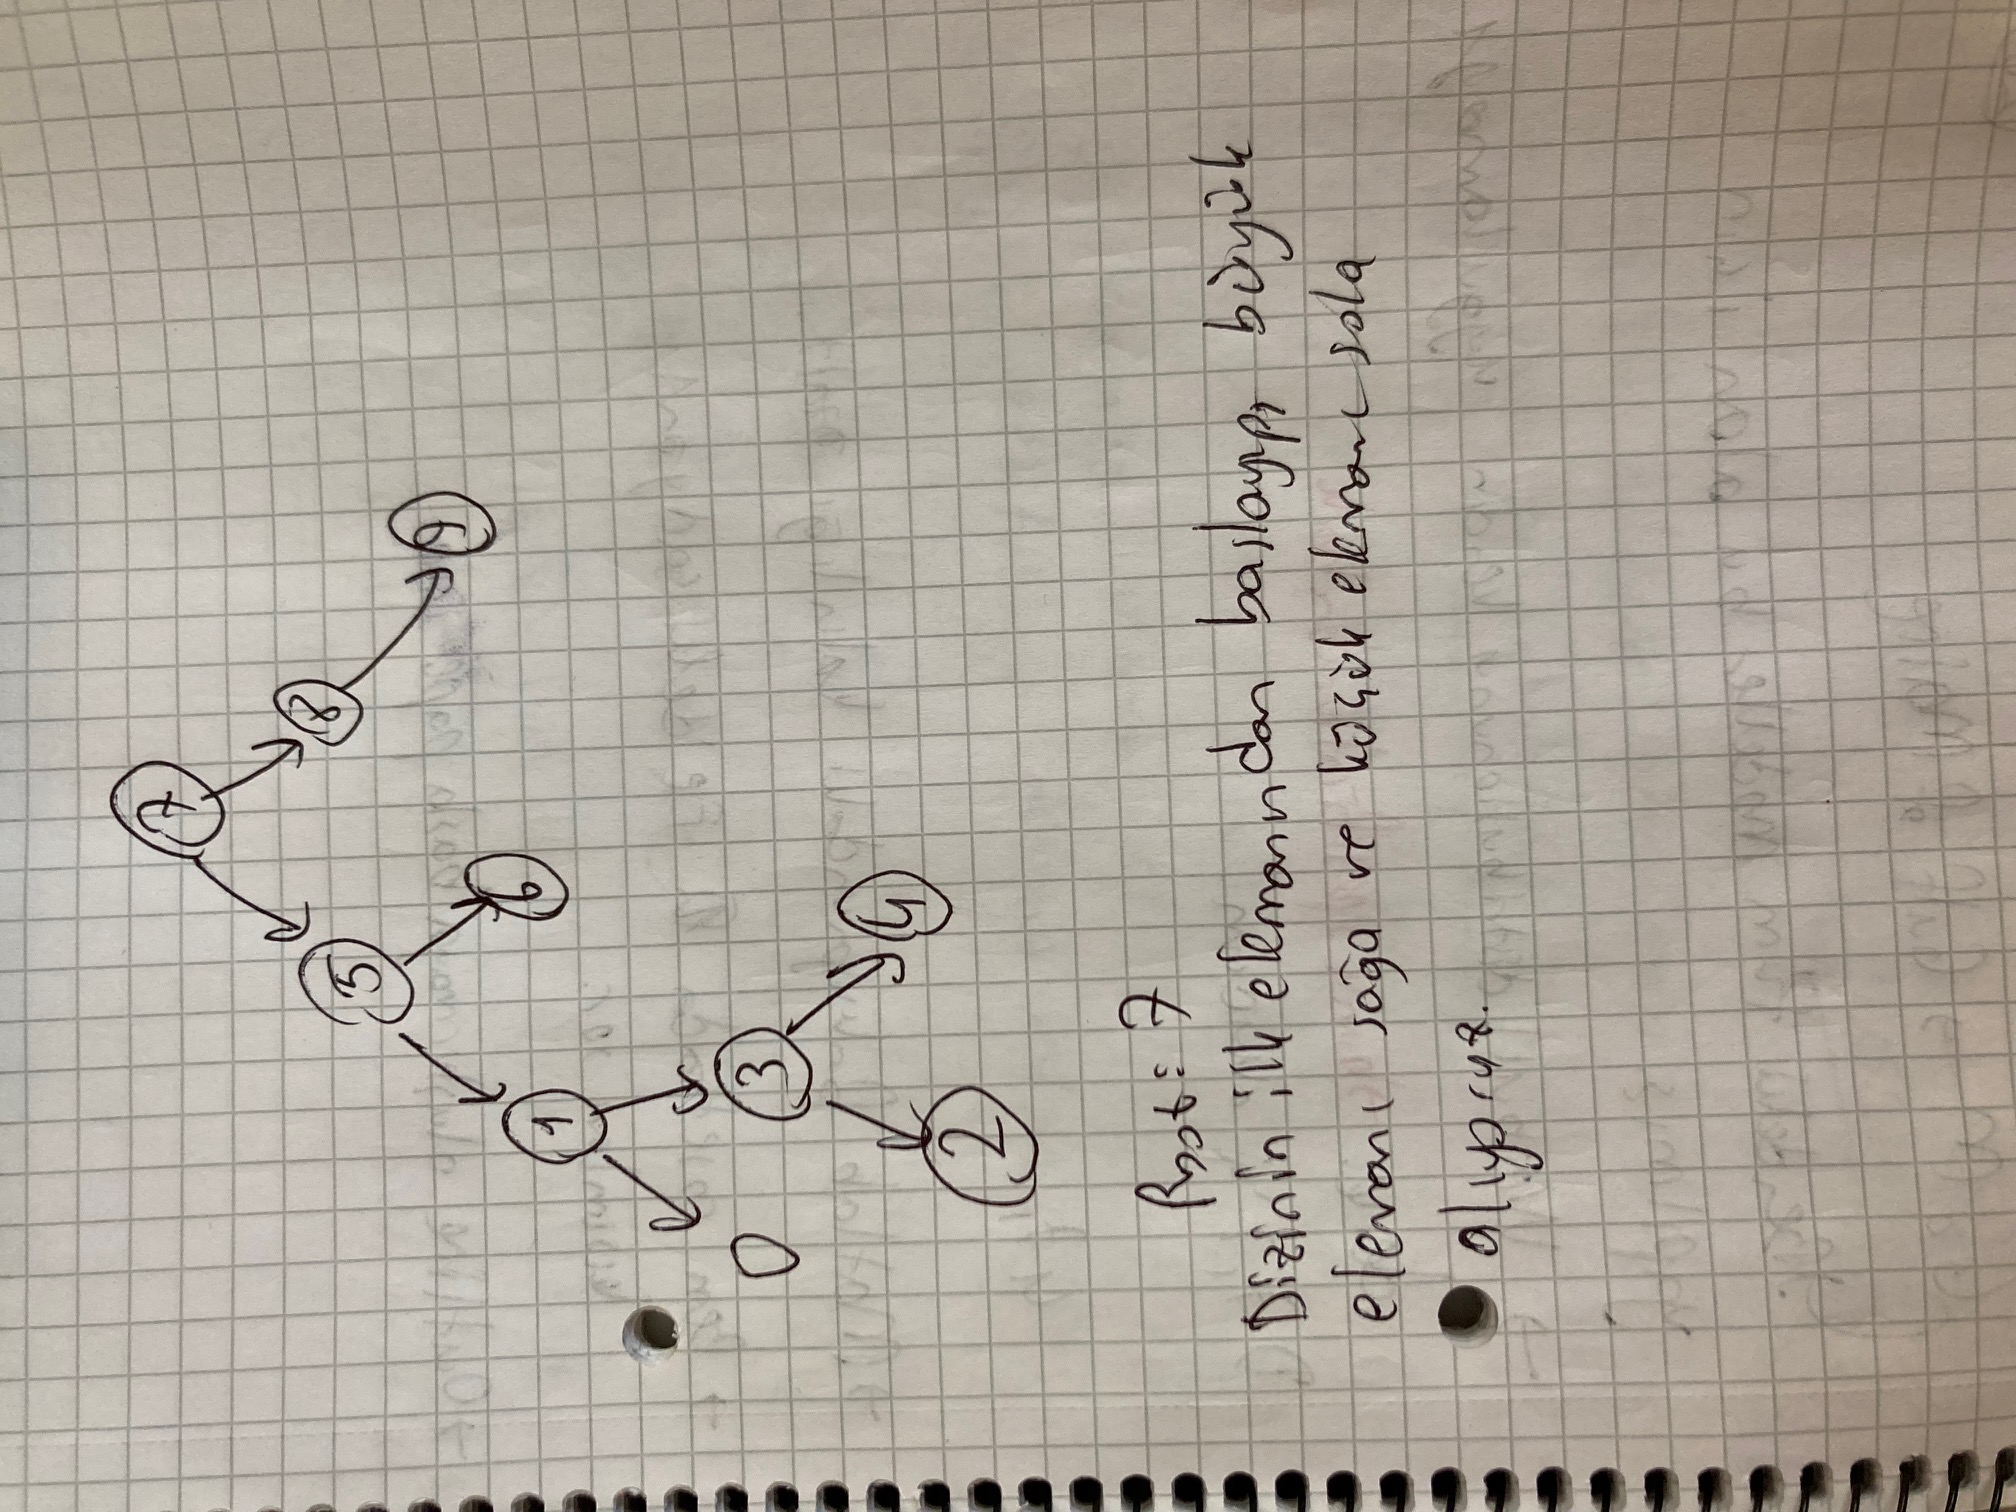 7
5 8
9
1 6
0 3
4
2
Root: 7
Dizinin ilk elemanından başlayıp, büyük
elemanı sağa ve küçük elemanı sola
alıyoruz.